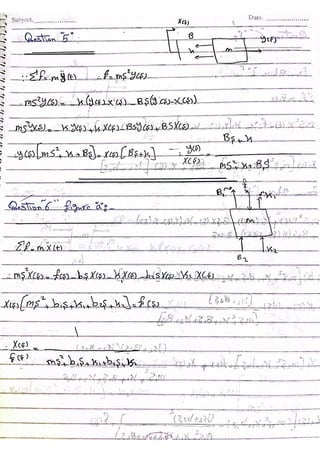 Subject, Date.
Question "5"
X(s)
B
K
m
y(s)
∴ Σf = mÿ(t) f = ms²y(s)
ms²y(s) = -K(y(s)-x(s)) - BS(y(s)-x(s))
ms²y(s) = -Ky(s) + Kx(s) - BSy(s) + BSX(s)
y(s)[ms² + K + BS] = X(s)[BS + K] → y(s)/X(s) = BS + K / ms² + K + BS
Question "6" figure a:-
B₁
K₁
m
B₂
K₂
Σf = mẍ(t)
∴ ms²X(s) = f(s) - b₁SX(s) - K₁X(s) - b₂SX(s) - K₂X(s)
X(s)[ms² + b₁S + K₁ + b₂S + K₂] = f(s)
∴ X(s)/f(s) = 1 / ms² + b₁S + K₁ + b₂S + K₂